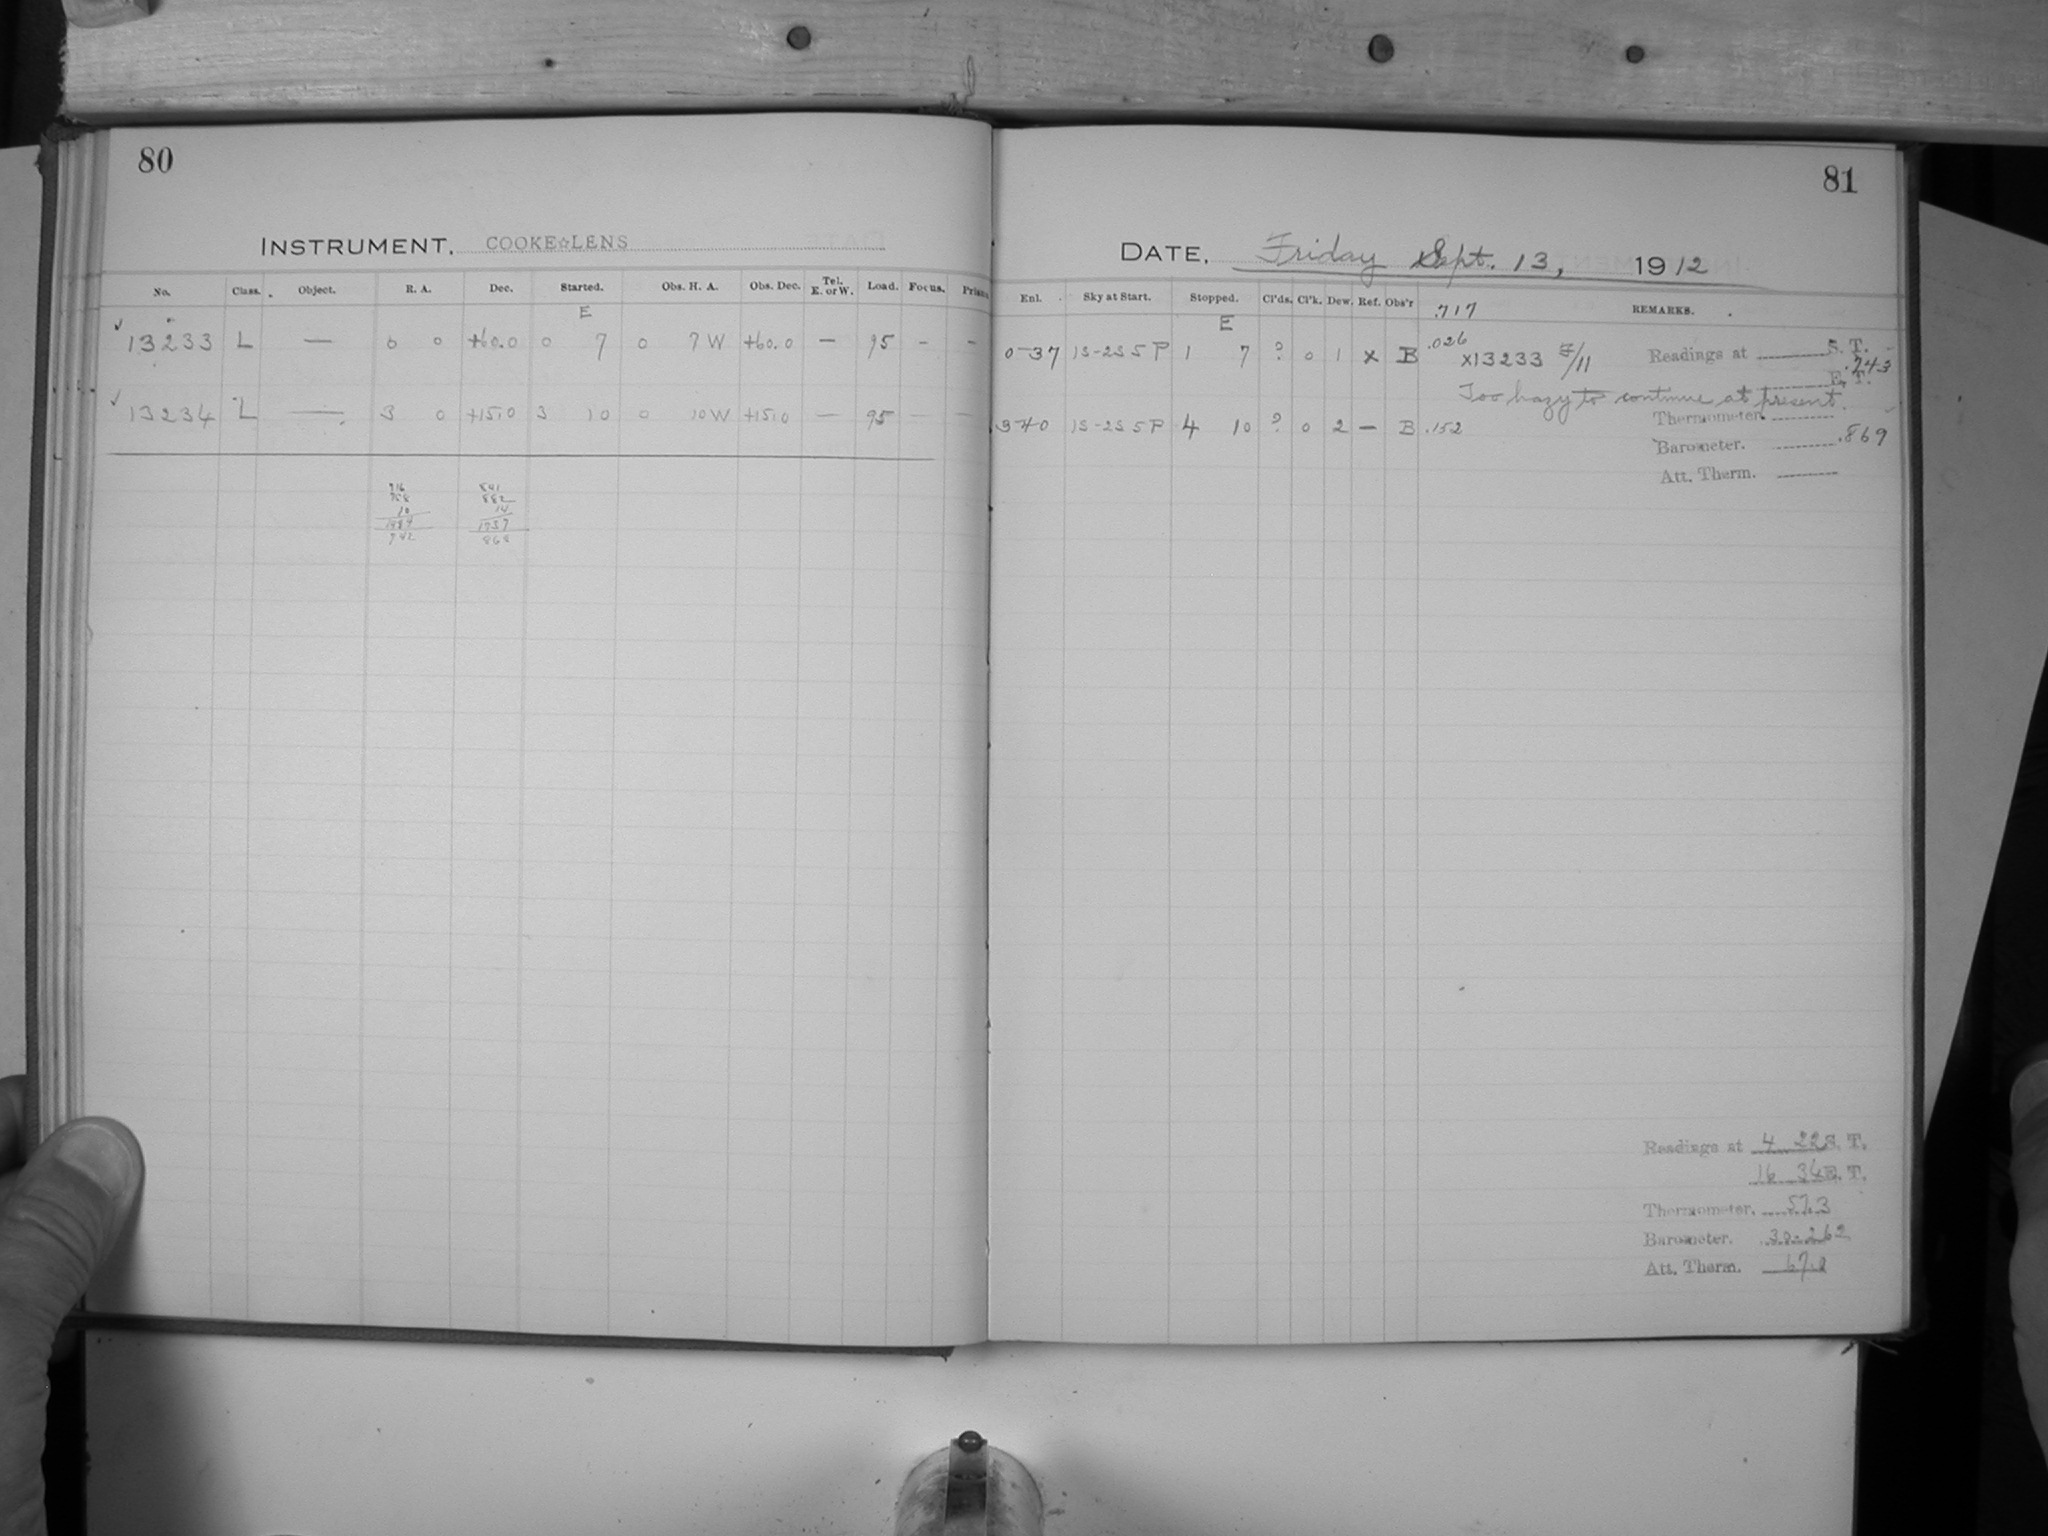 80
INSTRUMENT, COOKE☆LENS
No. Class. Object. R. A. Dec. Started. Obs. H. A. Obs. Dec. Tel. E. or W. Load. Focus. Prism
E
13233 L — 0 0 +60.0 0 7 0 7 W +60.0 — 95 - -
13234 L — 3 0 +15.0 3 10 0 10 W +15.0 — 95 — —
841
882
10 14
1484 1737
742 868
81
DATE, Friday Sept. 13, 1912
Enl. Sky at Start. Stopped. Cl'ds. Cl'k. Dew. Ref. Obs'r .717 REMARKS.
E
0-37 1S-2S 5 P 1 7 ? 0 1 x B .026 X13233 E/11
Readings at S. T.
.743
E. T.
Too hazy to continue at present.
Thermometer.
3 40 1S-2S 5 P 4 10 ? 0 2 — B .152
Barometer. .869
Att. Therm.
Readings at 4 22 S. T.
16 34 E. T.
Thermometer. 57.3
Barometer. 30.262
Att. Therm. 67.0